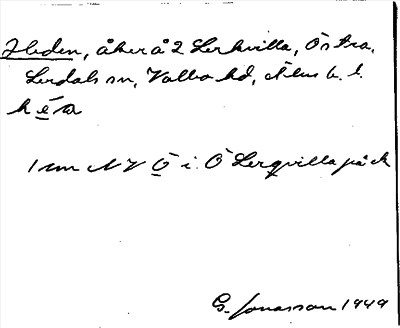 Heden, åker å 2 Lerkvilla, Östra.
Lerdals sn, Valbo hd, Älvs b. l.
h é̱ a
1 mm NV Ö i Ö Lerqvilla på ek
G. Jonasson 1949